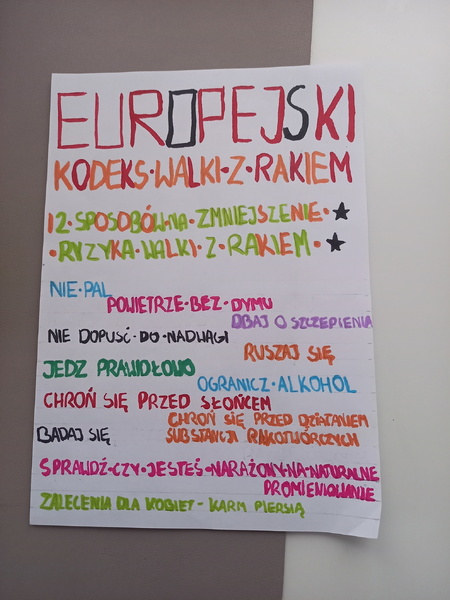 EUROPEJSKI
KODEKS·WALKI·Z·RAKIEM
12·SPOSOBÓWNA·ZMNIEJSZENIE·★
·RYZYKA·WALKI·Z·RAKIEM·★
NIE·PAL
POWIETRZE·BEZ·DYMU
DBAJ O SZCZEPIENIA
NIE DOPUŚĆ·DO·NADWAGI
RUSZAJ SIĘ
JEDZ PRAWIDŁOWO
OGRANICZ·ALKOHOL
CHROŃ SIĘ PRZED SŁOŃCEM
CHROŃ SIĘ PRZED DZIAŁANIEM
BADAJ SIĘ
SUBSTANCJI RAKOTWÓRCZYCH
SPRAWDŹ·CZY·JESTEŚ·NARAŻONY·NA·NATURALNE
PROMIENIOWANIE
ZALECENIA DLA KOBIET - KARM PIERSIĄ